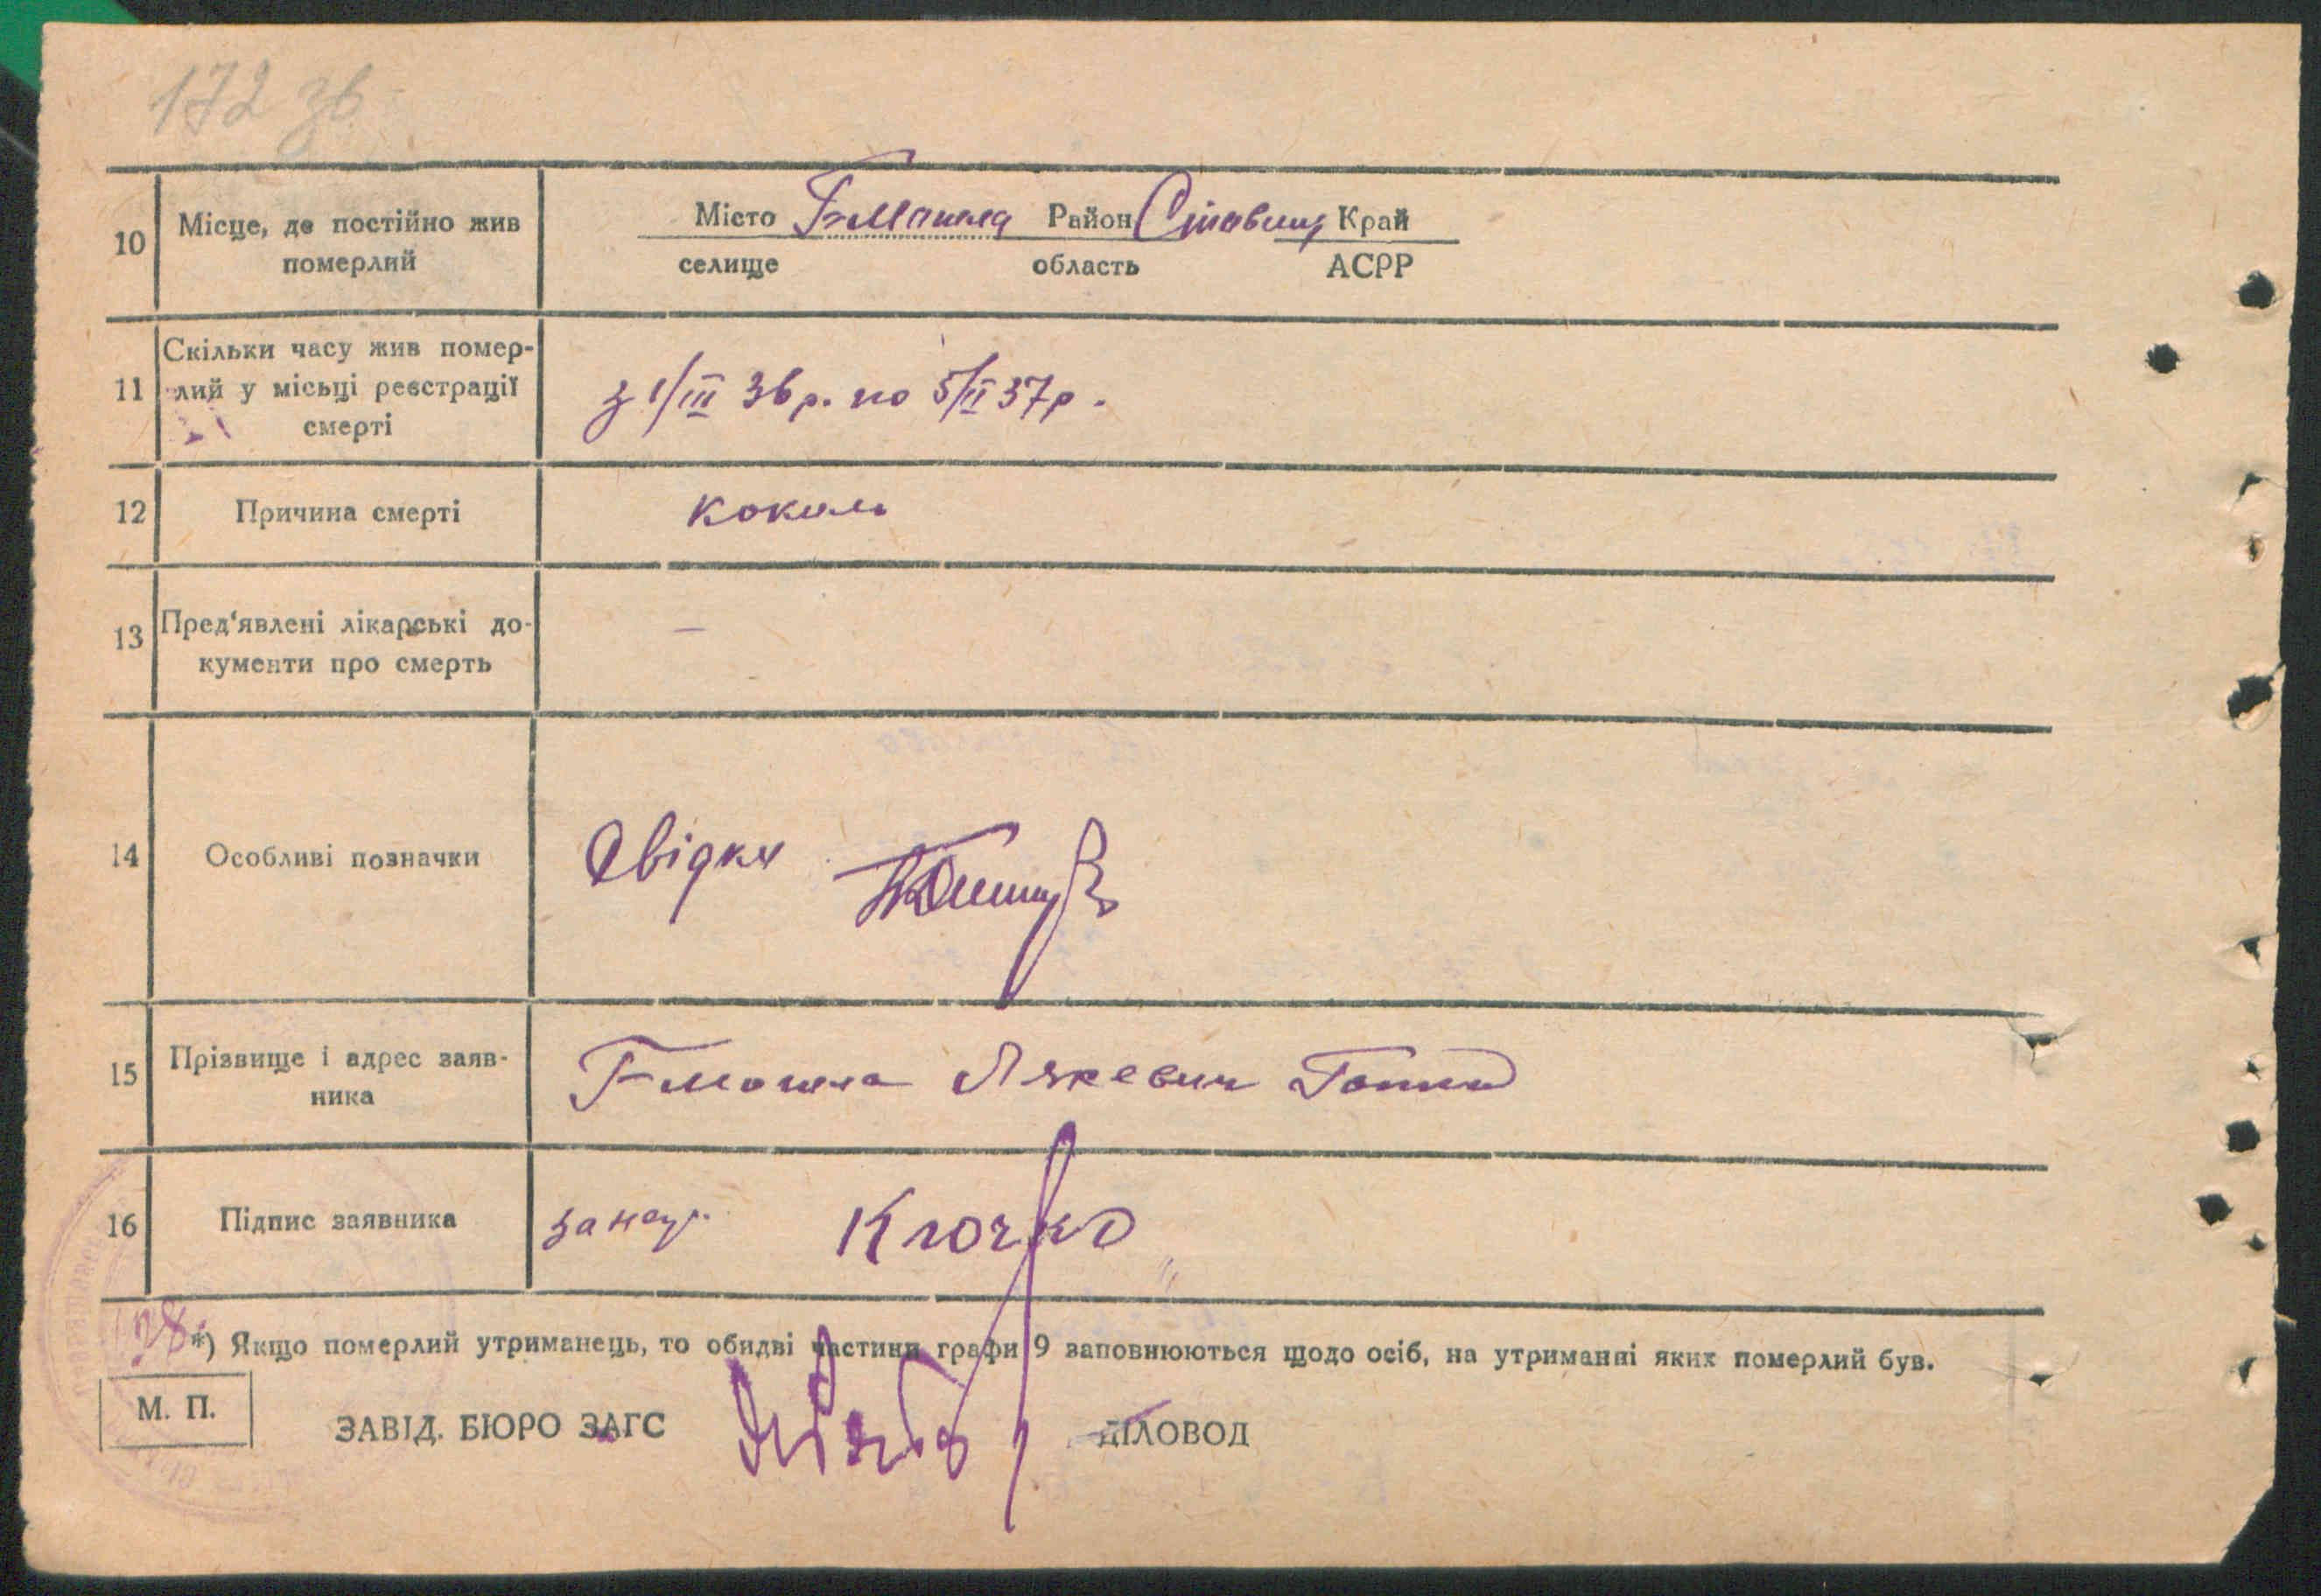 172 зв
10 Місце, де постійно жив померлий
Місто Район Ставищ Край
селище область АСРР
11 Скільки часу жив помер-
лий у місьці реєстрації
смерті
з 1/III 36 р. по 5/II 37 р.
12 Причина смерті коклю
13 Пред'явлені лікарські до-
кументи про смерть —
14 Особливі позначки Свідки
15 Прізвище і адрес заяв-
ника
16 Підпис заявника за неп. Клочко
*) Якщо померлий утриманець, то обидві частини графи 9 заповнюються щодо осіб, на утриманні яких померлий був.
М. П.
ЗАВІД. БЮРО ЗАГС ДІЛОВОД